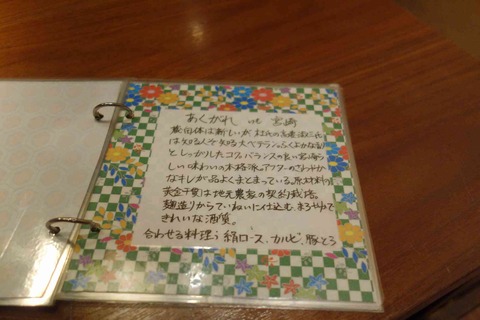 あくがれ 宮崎
蔵自体は新しいが杜氏の
は知る人ぞ知る大ベテラン。ふくよかな
としっかりしたコク。バランスの良い宮崎ら
しい味わいの本格派。アフターのさわやか
なキレが品よくまとまっている。原材料の
黄金千貫は地元農家の契約栽培。
麹造りからていねいに仕込む、まろやかで
きれいな酒質。
合わせる料理; 絹ロース、カルビ、豚とろ